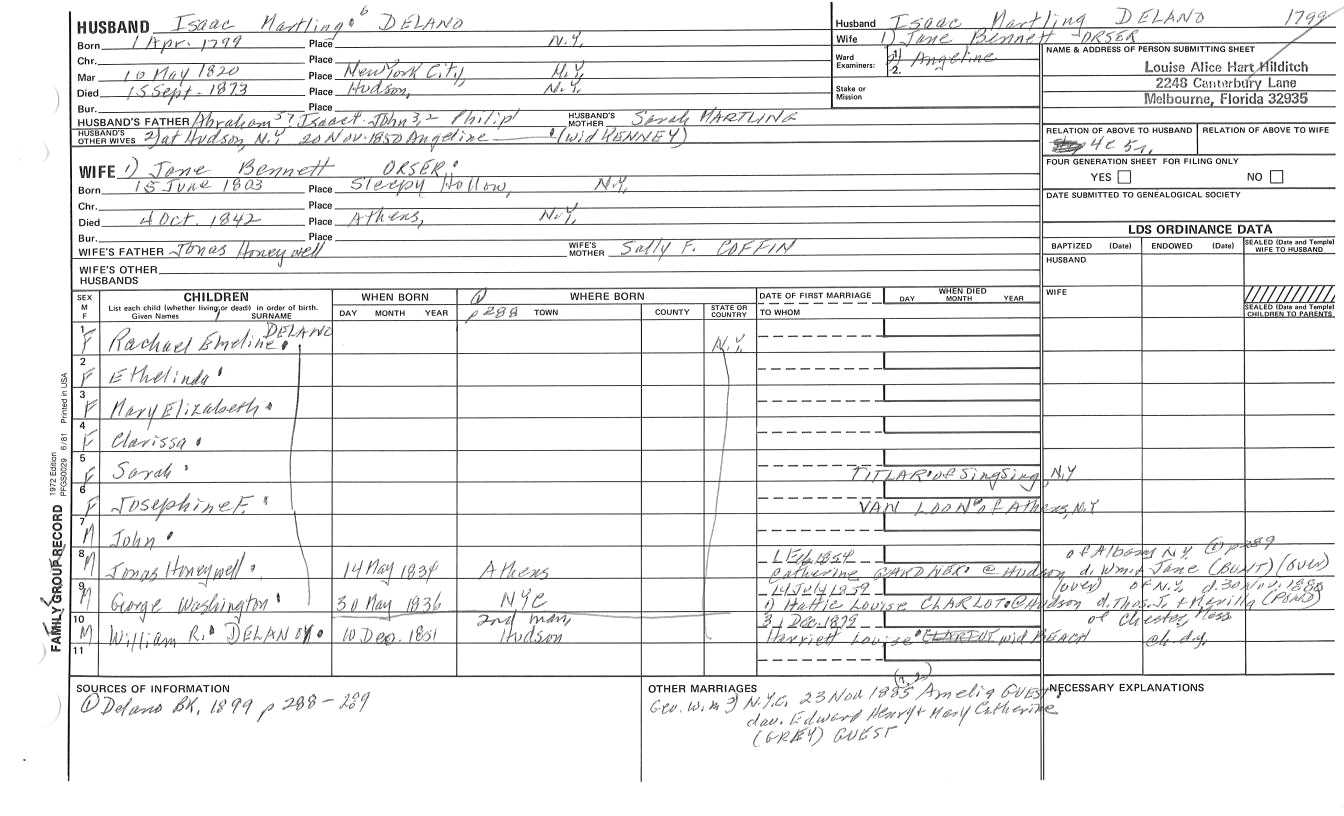 HUSBAND Isaac Martling 6 DELANO
Born 1 Apr. 1799 Place N.Y.
Chr. Place
Mar 10 May 1820 Place New York City, N.Y.
Died 15 Sept. 1873 Place Hudson, N.Y.
Bur. Place
HUSBAND'S FATHER Abraham 5, Isaac 4, John 3, 2 Philip HUSBAND'S MOTHER Sarah MARTLING
HUSBAND'S OTHER WIVES 2) at Hudson, N.Y. 20 Nov. 1850 Angeline (wid KENNEY)
WIFE 1) Jane Bennett ORSER
Born 15 June 1803 Place Sleepy Hollow, N.Y.
Chr. Place
Died 4 Oct. 1842 Place Athens, N.Y.
Bur. Place
WIFE'S FATHER Jonas Honeywell WIFE'S MOTHER Sally F. COFFIN
WIFE'S OTHER HUSBANDS
Husband Isaac Martling DELANO 1799
Wife 1) Jane Bennett ORSER
Ward Examiners: 1. 2. 2) Angeline
Stake or Mission
NAME & ADDRESS OF PERSON SUBMITTING SHEET
Louise Alice Hart Hilditch
2248 Canterbury Lane
Melbourne, Florida 32935
RELATION OF ABOVE TO HUSBAND RELATION OF ABOVE TO WIFE
4c 5r.
FOUR GENERATION SHEET FOR FILING ONLY
YES NO
DATE SUBMITTED TO GENEALOGICAL SOCIETY
LDS ORDINANCE DATA
BAPTIZED (Date) ENDOWED (Date) SEALED (Date and Temple) WIFE TO HUSBAND
HUSBAND
WIFE
SEALED (Date and Temple) CHILDREN TO PARENTS
SEX M F CHILDREN WHEN BORN WHERE BORN DATE OF FIRST MARRIAGE WHEN DIED
List each child (whether living or dead) in order of birth. Given Names SURNAME DAY MONTH YEAR (1) p 288 TOWN COUNTY STATE OR COUNTRY TO WHOM DAY MONTH YEAR
1 F Rachael Emeline DELANO N.Y.
2 F Ethelinda
3 F Mary Elizabeth
4 F Clarissa
5 F Sarah TITLAR of Sing Sing, N.Y
6 F Josephine F. VAN LOON of Athens, N.Y
7 M John
8 M Jonas Honeywell 14 May 1834 Athens 1 Feb 1854 of Albany N.Y. (1) p289
Catherine GARDNER @ Hudson d. Wm + Jane (BUNT) (over)
9 M George Washington 30 May 1836 NYC 14 July 1859 (over) of N.Y. d. 30 Nov. 1880
1) Hattie Louise CHARLOT @ Hudson d. Thos. J. + Merilla (POND)
10 M William R. DELANO 10 Dec. 1851 2nd marr. Hudson 3 Dec. 1879 of Chester, Mass
Harriett Louise wid BEACH ch. d.y.
11
SOURCES OF INFORMATION
(1) Delano BK, 1899 p 288-289
OTHER MARRIAGES
Geo. W. m 3) N.Y.C. 23 Nov 1885 Amelia GUEST,
dau. Edward Henry + Mary Catherine
(GREY) GUEST
NECESSARY EXPLANATIONS
FAMILY GROUP RECORD 1972 Edition PFGS0029 6/81 Printed in USA